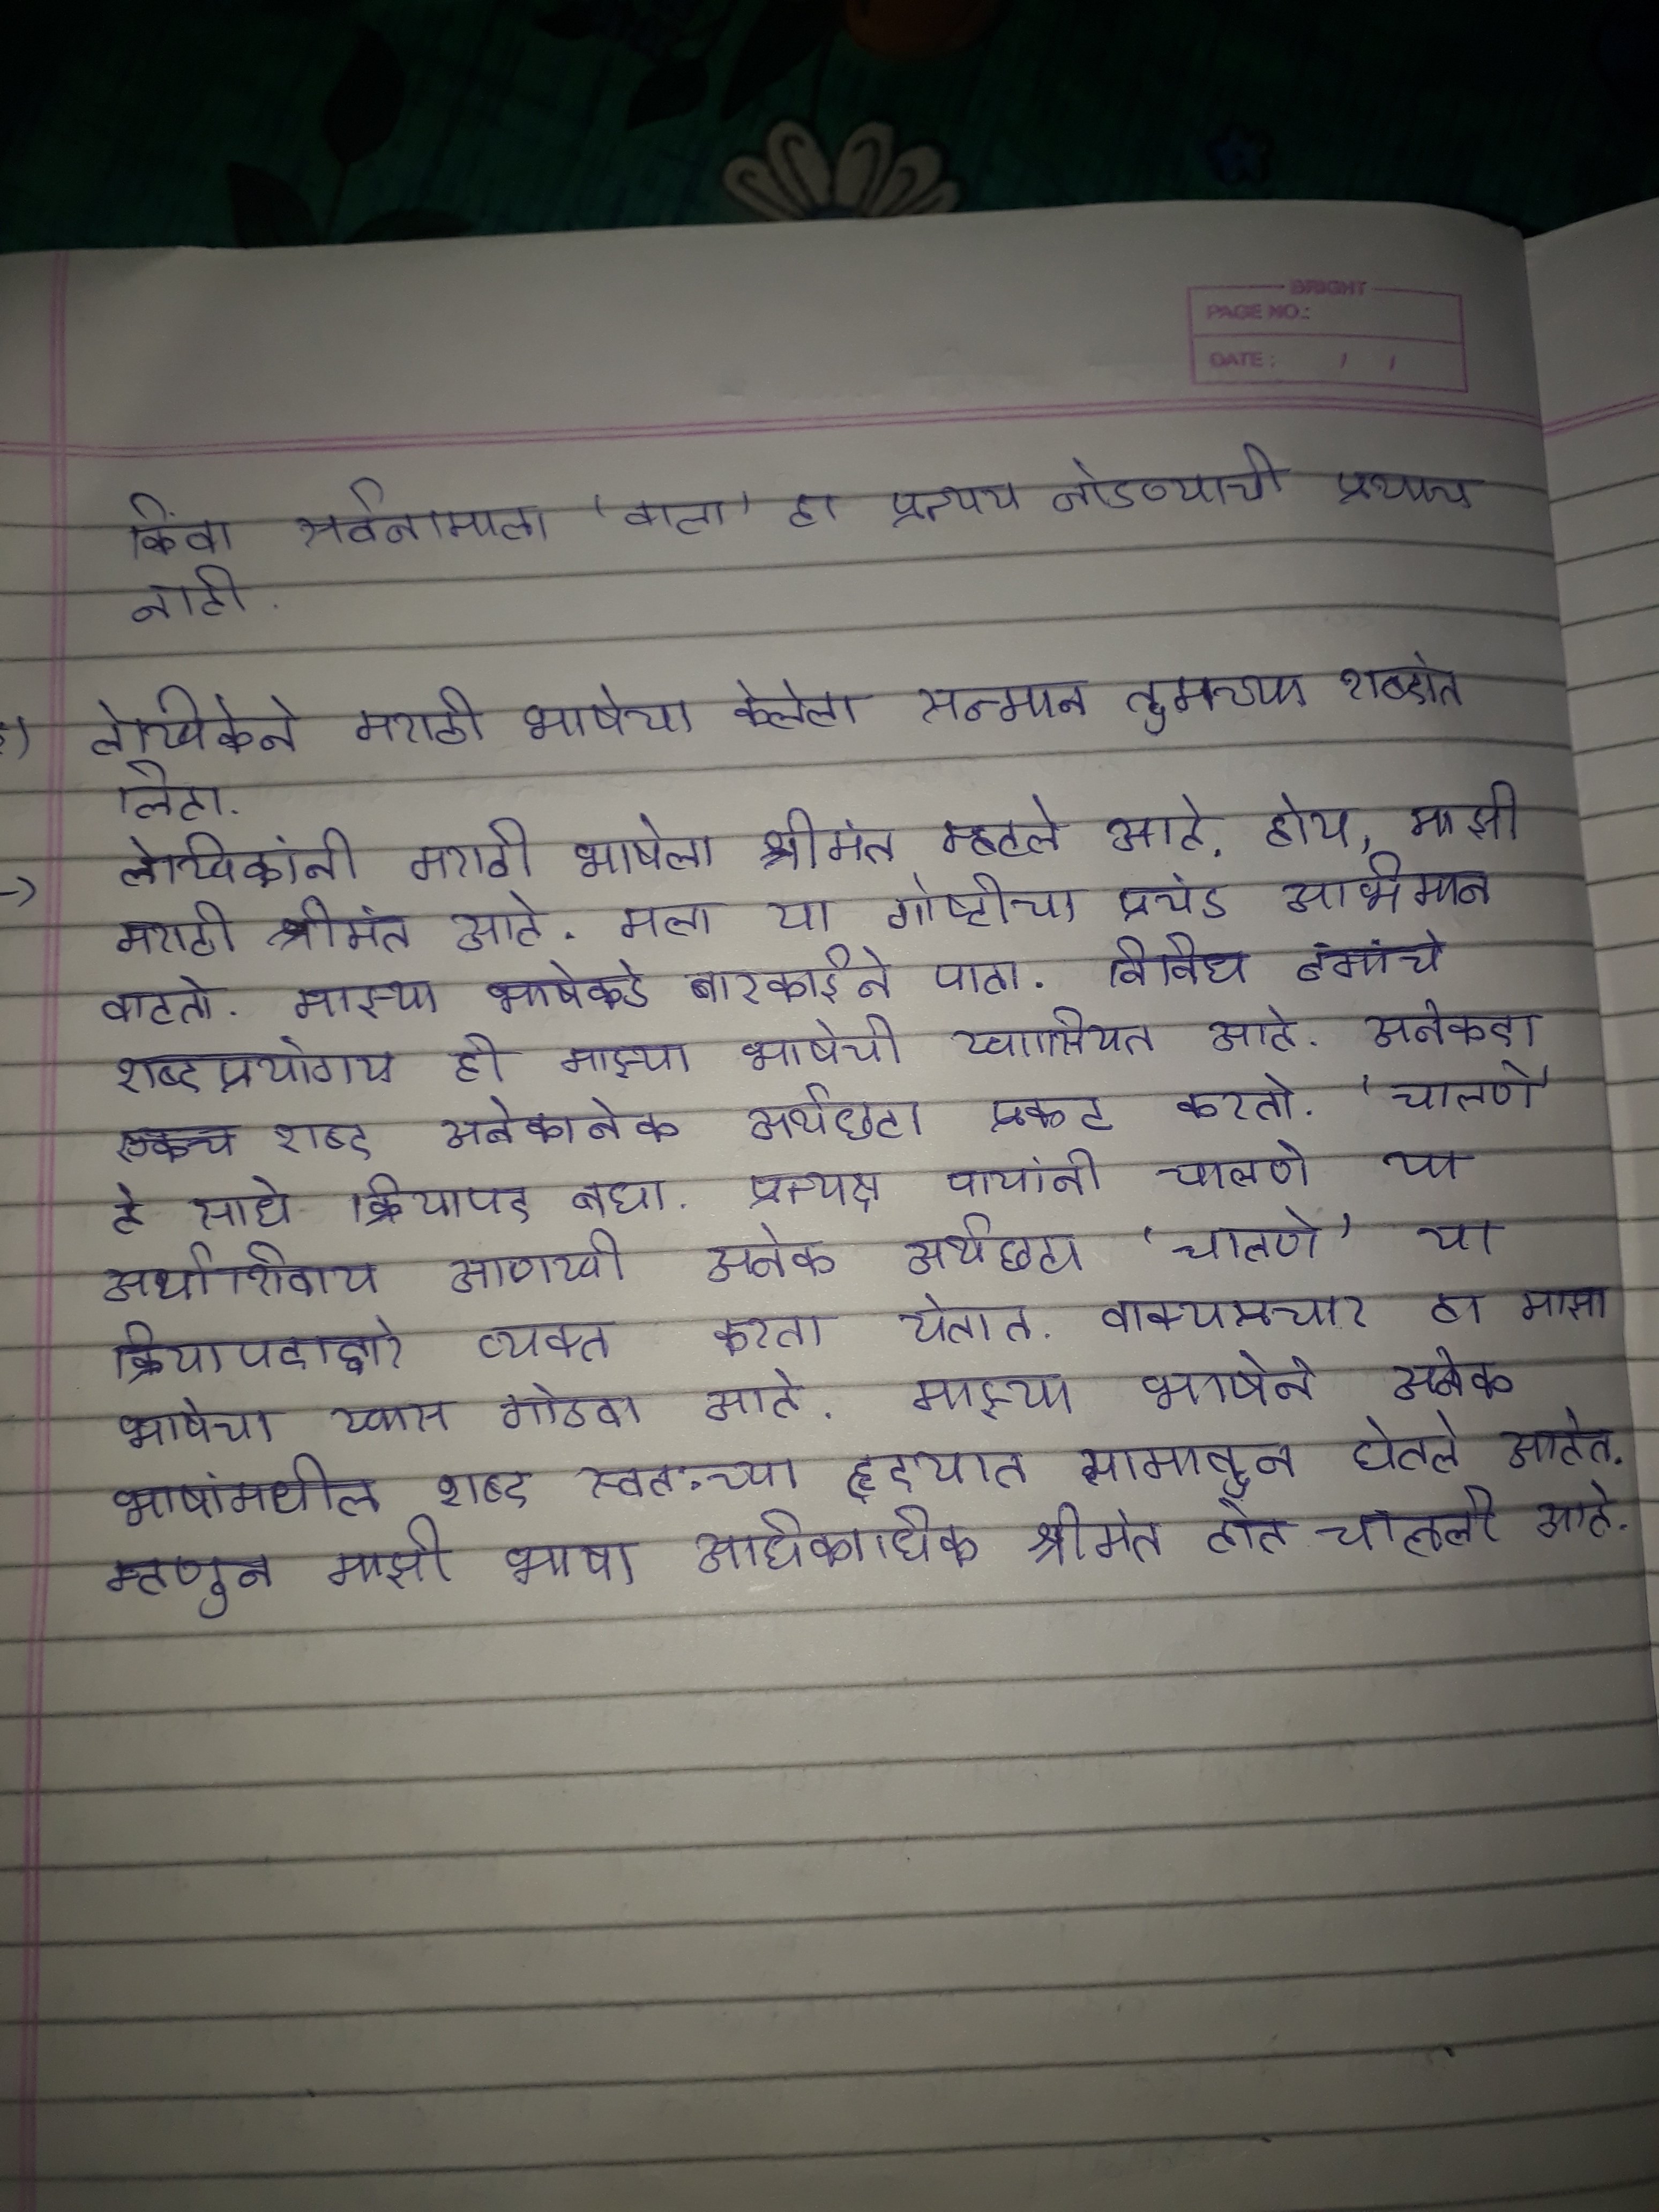 BRIGHT
PAGE NO.:
DATE : / /
किंवा सर्वनामाला 'वाला' हा प्रत्यय जोडण्याची प्रथाच
नाही.
लेखिकेने मराठी भाषेचा केलेला सन्मान तुमच्या शब्दांत
लिहा.
→ लेखिकांनी मराठी भाषेला श्रीमंत म्हटले आहे. होय, माझी
मराठी श्रीमंत आहे. मला या गोष्टीचा प्रचंड अभिमान
वाटतो. माझ्या भाषेकडे बारकाईने पाहा. विविध ढंगांचे
शब्दप्रयोगच ही माझ्या भाषेची खासियत आहे. अनेकदा
एकच शब्द अनेकानेक अर्थछटा प्रकट करतो. 'चालणे'
हे साधे क्रियापद बघा. प्रत्यक्ष पायांनी चालणे या
अर्थाशिवाय आणखी अनेक अर्थछटा 'चालणे' या
क्रियापदाद्वारे व्यक्त करता येतात. वाक्यप्रचार हा माझा
भाषेचा खास गोडवा आहे. माझ्या भाषेने अनेक
भाषांमधील शब्द स्वतःच्या हृदयात सामावून घेतले आहेत.
म्हणुन माझी भाषा अधिकाधिक श्रीमंत होत चालली आहे.